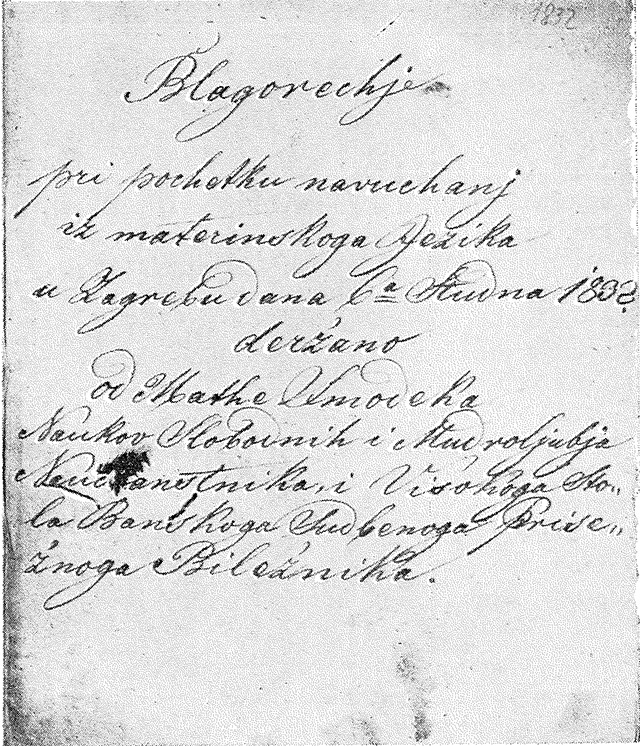 1832
Blagorechje
pri pochetku navuchanj
iz materinskoga Jezika
u Zagrebu dana 6a Studna 1832
deržano
od Mathe Smodeka
Naukov Slobodnih i Mudroljubja
i Visokoga Sto„
la Banskoga Sudbenoga Prise„
žnoga Biležnika.